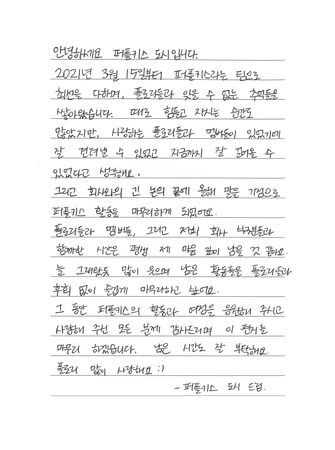 안녕하세요 퍼플키스 도시입니다.
2021년 3월 15일부터 퍼플키스라는 팀으로
최선을 다하며, 플로리들과 잊을 수 없는 추억들을
쌓아왔습니다. 때로 힘들고 지치는 순간도
많았지만, 사랑하는 플로리들과 멤버들이 있었기에
잘 견뎌낼 수 있었고 지금까지 잘 걸어올 수
있었다고 생각해요.
그리고 회사와의 긴 논의 끝에 올해 말을 기점으로
퍼플키스 활동을 마무리하게 되었어요.
플로리들과 멤버들, 그리고 저희 회사 식구분들과
함께한 시간은 평생 제 마음 깊이 남을 것 같아요.
늘 그래왔듯 많이 웃으며 남은 활동들을 플로리들과
후회 없이 즐겁게 마무리하고 싶어요.
그 동안 퍼플키스의 활동과 여정을 응원해 주시고
사랑해 주신 모든 분께 감사드리며 이 편지를
마무리 하겠습니다. 남은 시간도 잘 부탁해요
플로리 많이 사랑해요 :)
- 퍼플키스 도시 드림.